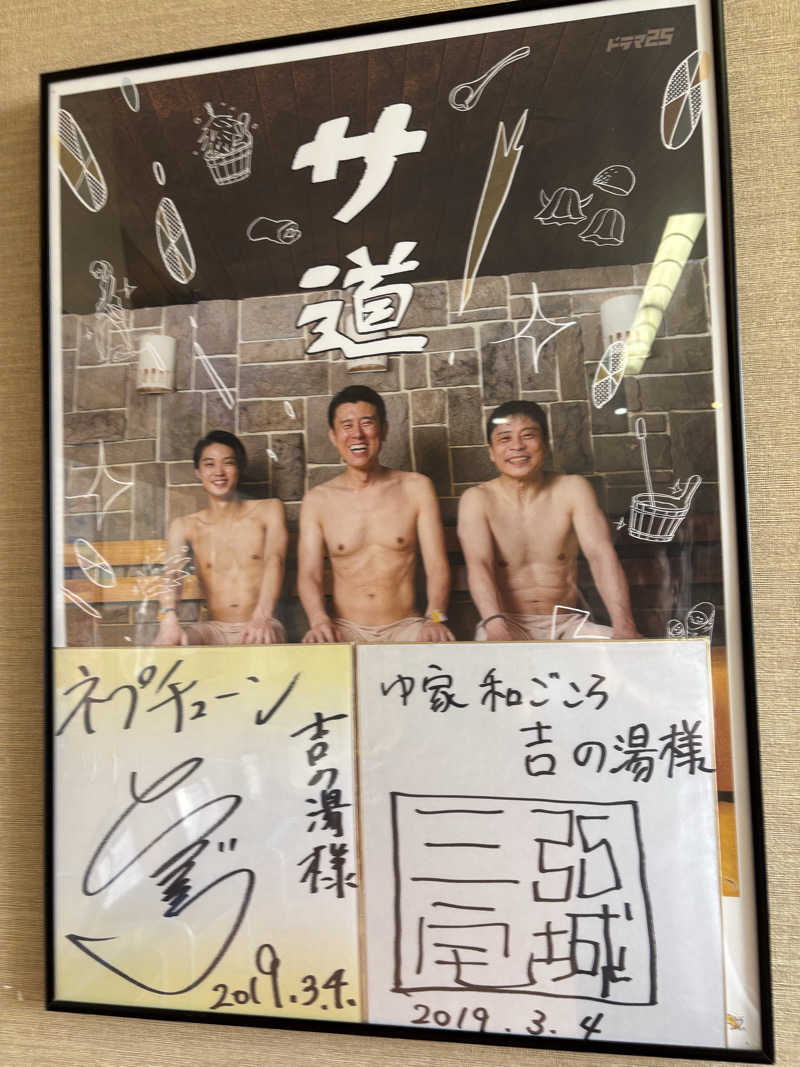 ドラマ25
サ道
ネプチューン
吉の湯様
2019.3.4.
ゆ家 和ごころ
吉の湯様
三宅
弘城
2019.3.4